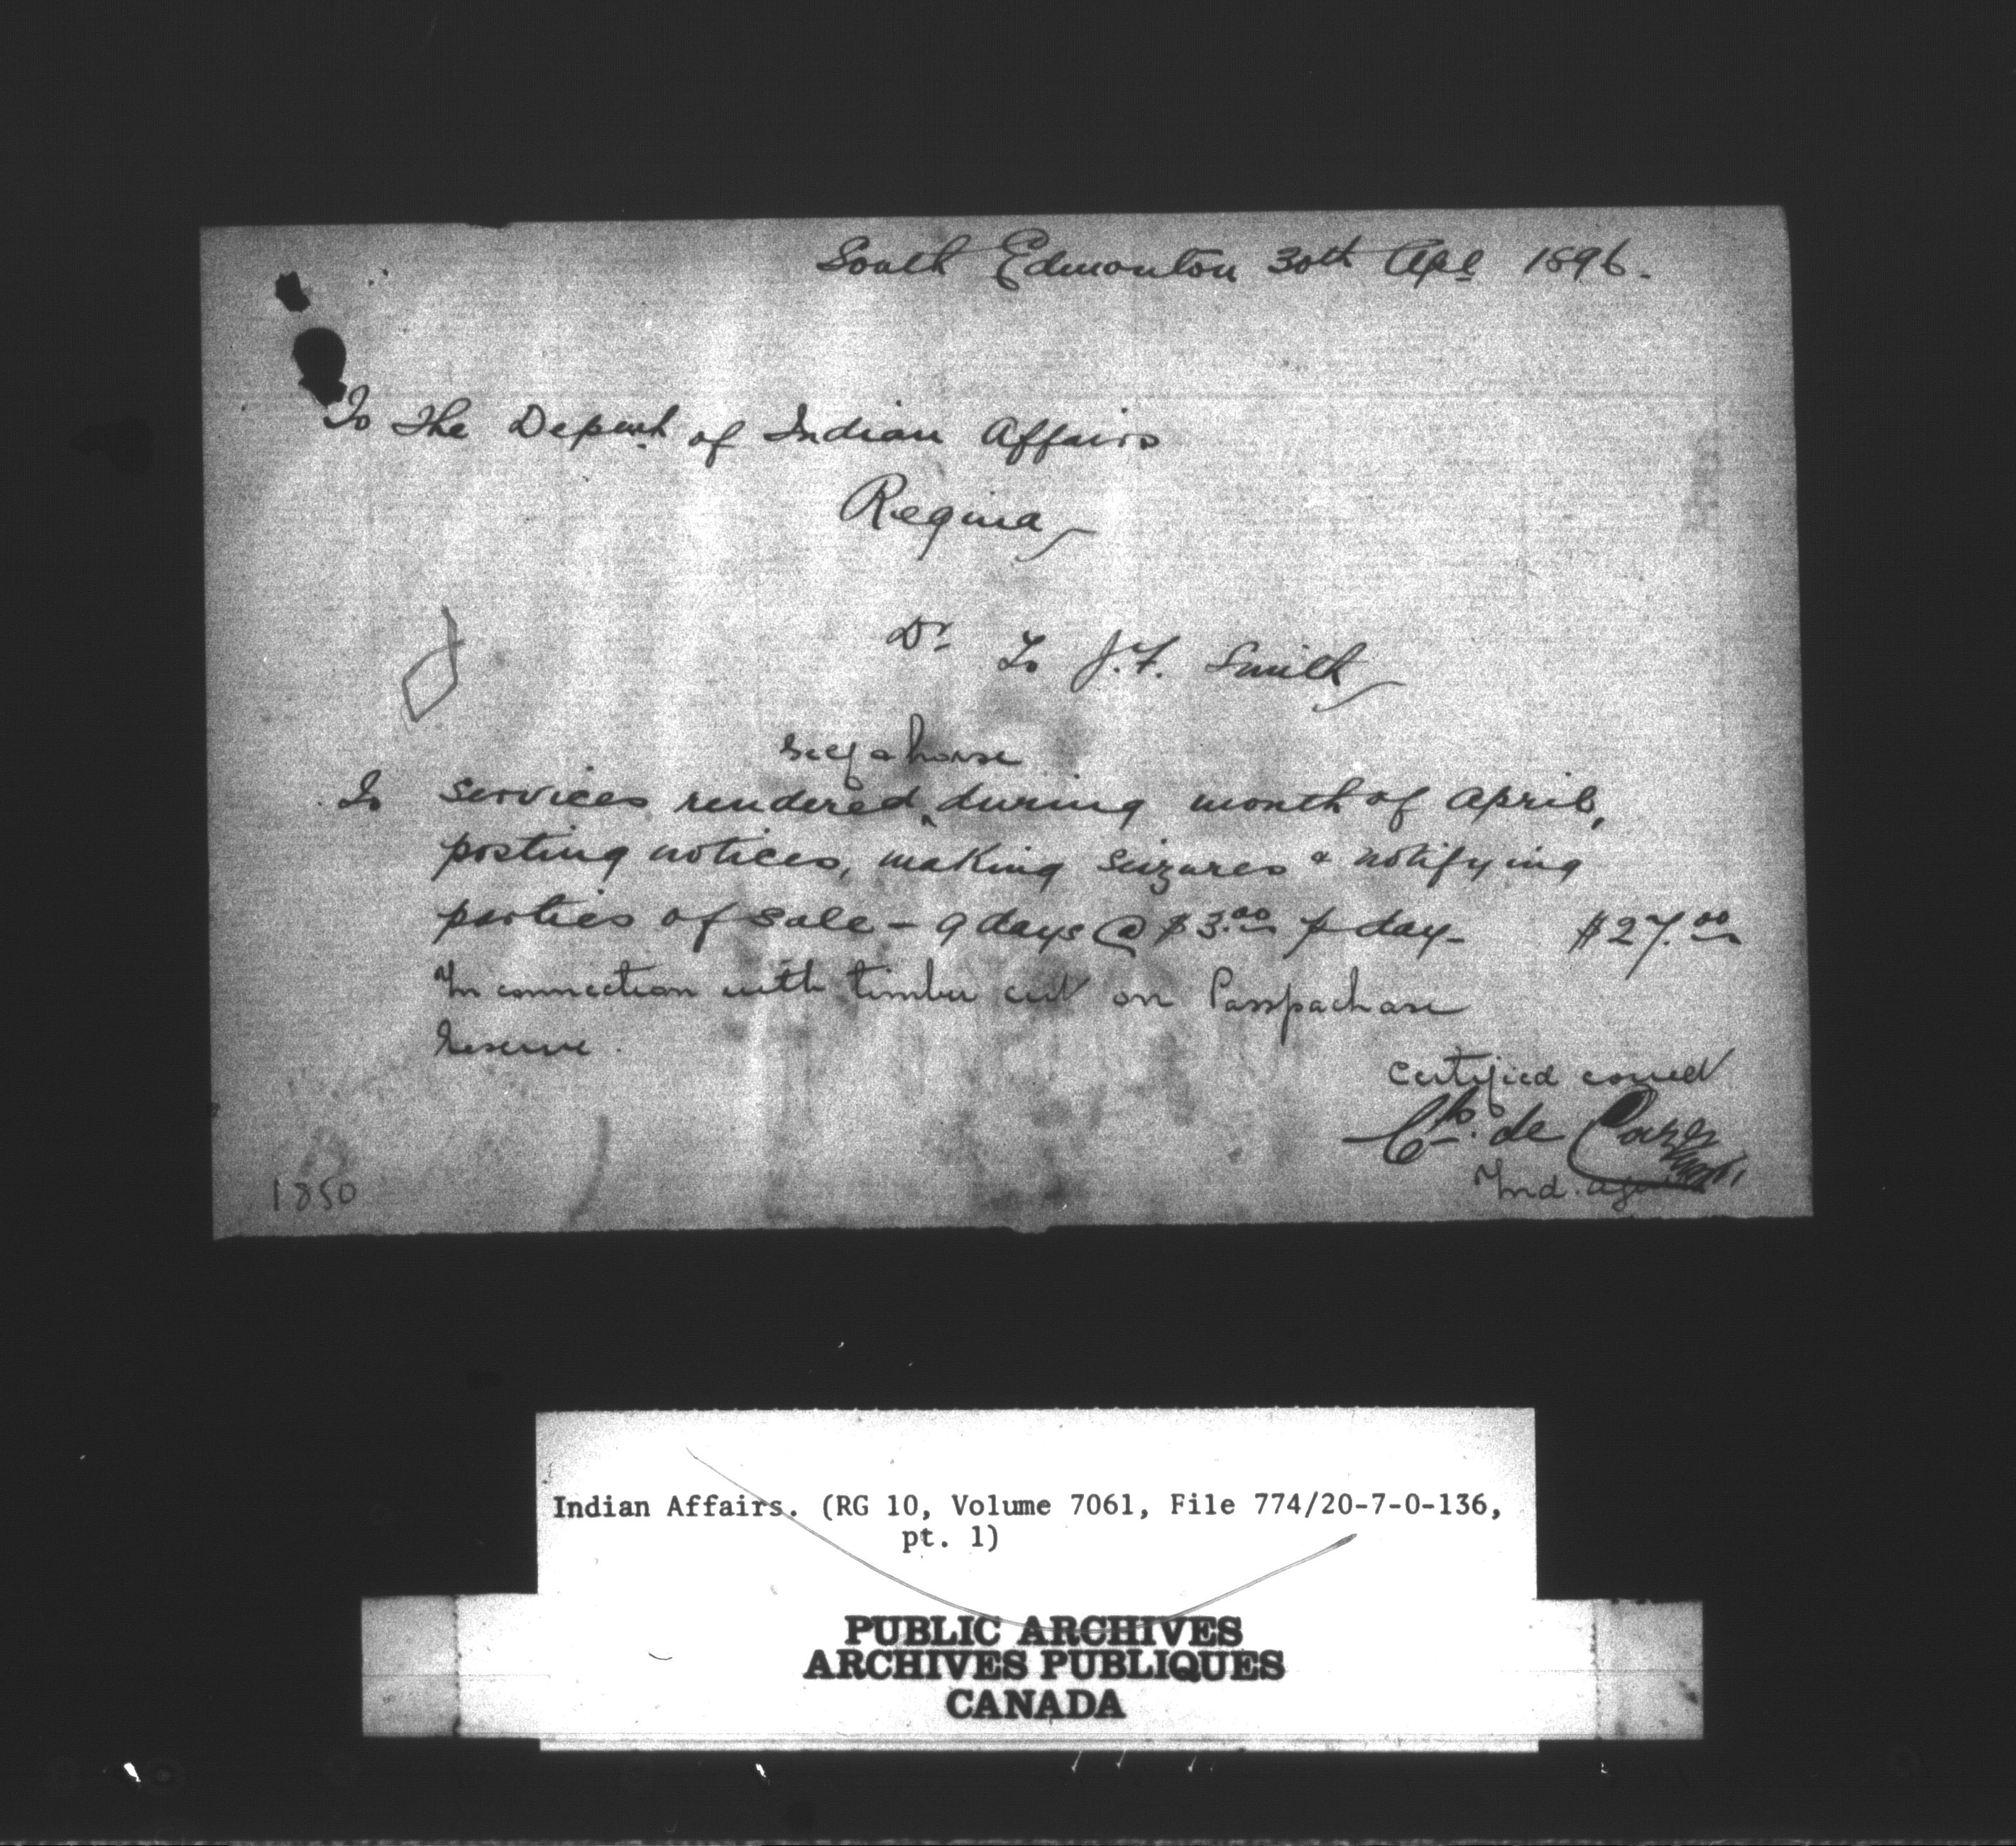 South Edmonton 30th Apl 1896.
To The Depart. of Indian Affairs
Regina
Dr. To J.F. Smith
self & horse
To services rendered ‸ during month of April,
posting notices, making seizures & notifying
parties of sale - 9 days @ $3.00 p day- $27.00
In connection with timber cut on Passpachase
Reserve.
Certified correct
Chs. de Cazes
Ind. Agent
1850
Indian Affairs. (RG 10, Volume 7061, File 774/20-7-0-136,
pt. 1)
PUBLIC ARCHIVES
ARCHIVES PUBLIQUES
CANADA